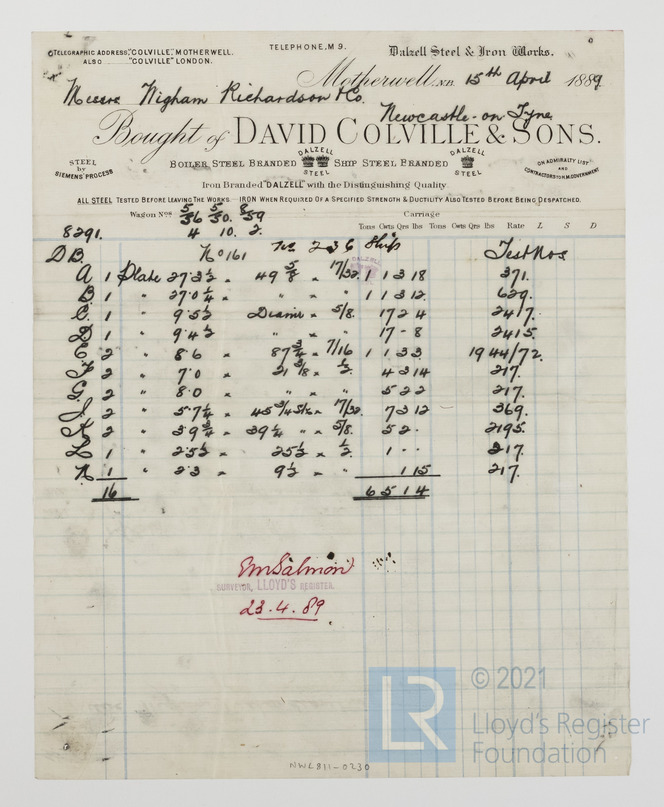 TELEGRAPHIC ADDRESS, "COLVILLE", MOTHERWELL.
ALSO "COLVILLE" LONDON.
TELEPHONE, M 9.
Dalzell Steel & Iron Works.
Motherwell, N.B. 15th April 1889
Messrs Wigham Richardson & Co.
Newcastle-on-Tyne
Bought of DAVID COLVILLE & SONS.
STEEL by SIEMENS' PROCESS
BOILER STEEL BRANDED DALZELL STEEL SHIP STEEL BRANDED DALZELL STEEL
ON ADMIRALTY LIST AND CONTRACTORS TO H.M. GOVERNMENT
Iron Branded "DALZELL" with the Distinguishing Quality
ALL STEEL TESTED BEFORE LEAVING THE WORKS. IRON WHEN REQUIRED OF A SPECIFIED STRENGTH & DUCTILITY ALSO TESTED BEFORE BEING DESPATCHED.
Wagon Nos 5/36 5/30. 8/59
Carriage
8291. 4 10. 2.
Tons Cwts Qrs lbs Tons Cwts Qrs lbs Rate L S D
DB. No 161 236 Ship Test Nos
A 1 Plate 27.3½ × 49 5/8 × 7/32 1 1 3 18 371.
B 1 " 27.0¼ × " × " 1 1 3 12. 629.
C. 1 " 9.5½ Diamr × 5/8. 17 2 4 2417.
D 1 " 9.4½ " × " 17 - 8 2415.
E 2 " 8.6 × 87¾ × 7/16 1 1 3 3 1944/72.
F 2 " 7.0 × 21 3/8 × ½. 4 3 14 217.
G 2 " 8.0 × " × " 5 2 2 217.
J 2 " 5.7¼ × 45¾ × 7/32. 7 3 12 369.
K 2 " 3.9¾ × 39¼ × 5/8. 5 2 · 2195.
L 1 " 2.5½ × 25½ × ½ 1 · · 217.
N 1 " 2.3 × 9½ × " 1 15 217.
16 6 5 1 4
Salmon
SURVEYOR, LLOYD'S REGISTER.
23.4.89
LR © 2021
Lloyd's Register
Foundation
NWL811-0230